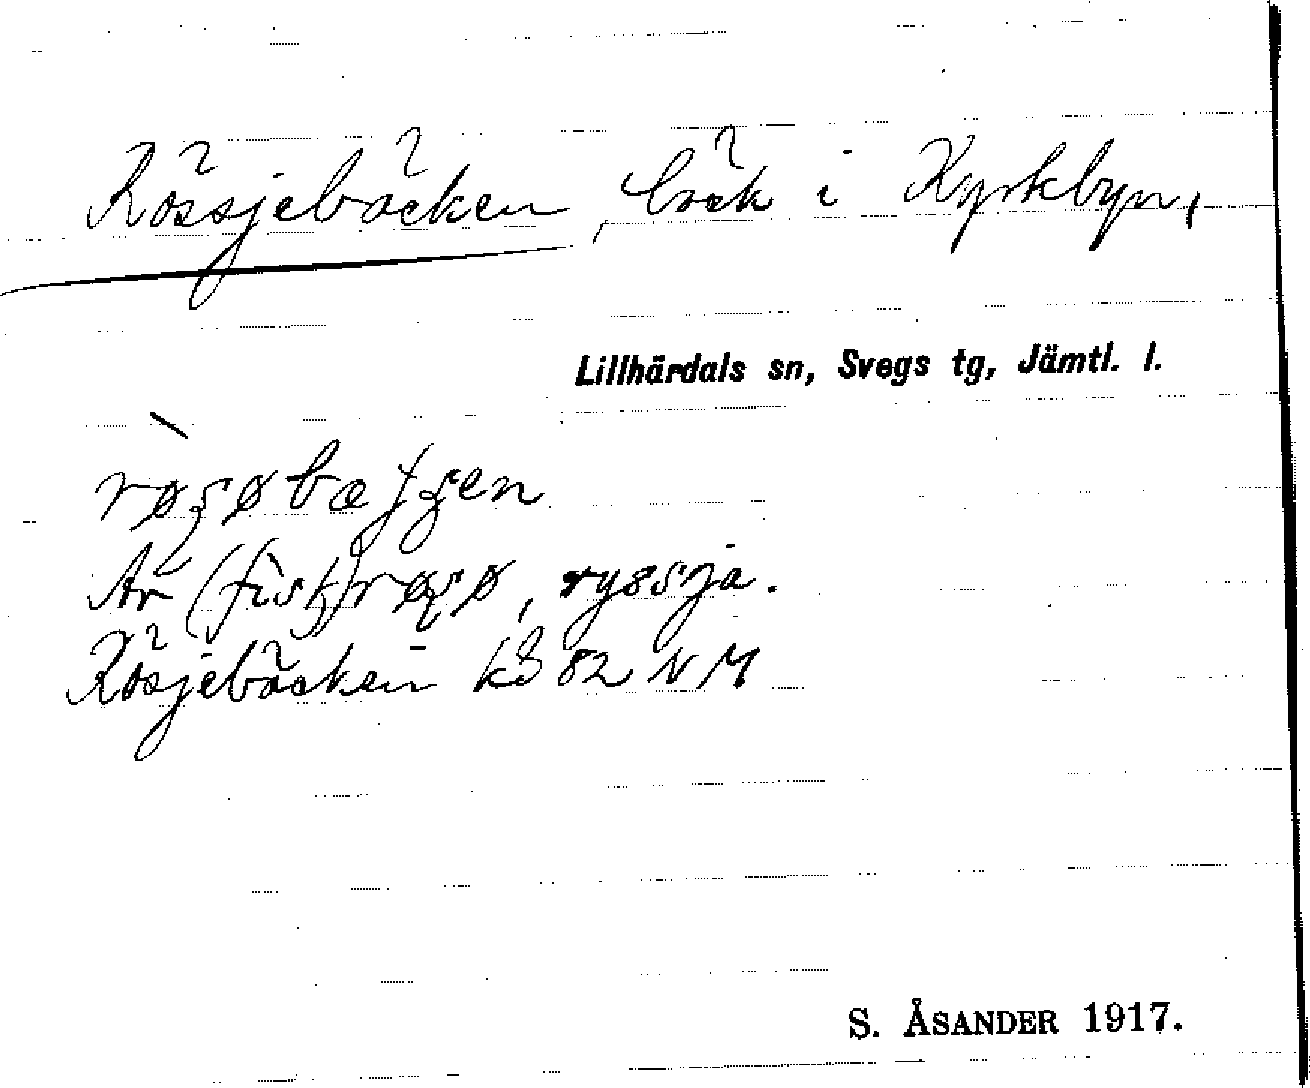 Rössjebäcken, bäck i Kyrkbyn,
Lillhärdals sn, Svegs tg, Jämtl. l.
Av (fisk) ryssja.
Rösjebäcken kS 82 N M
S. ÅSANDER 1917.